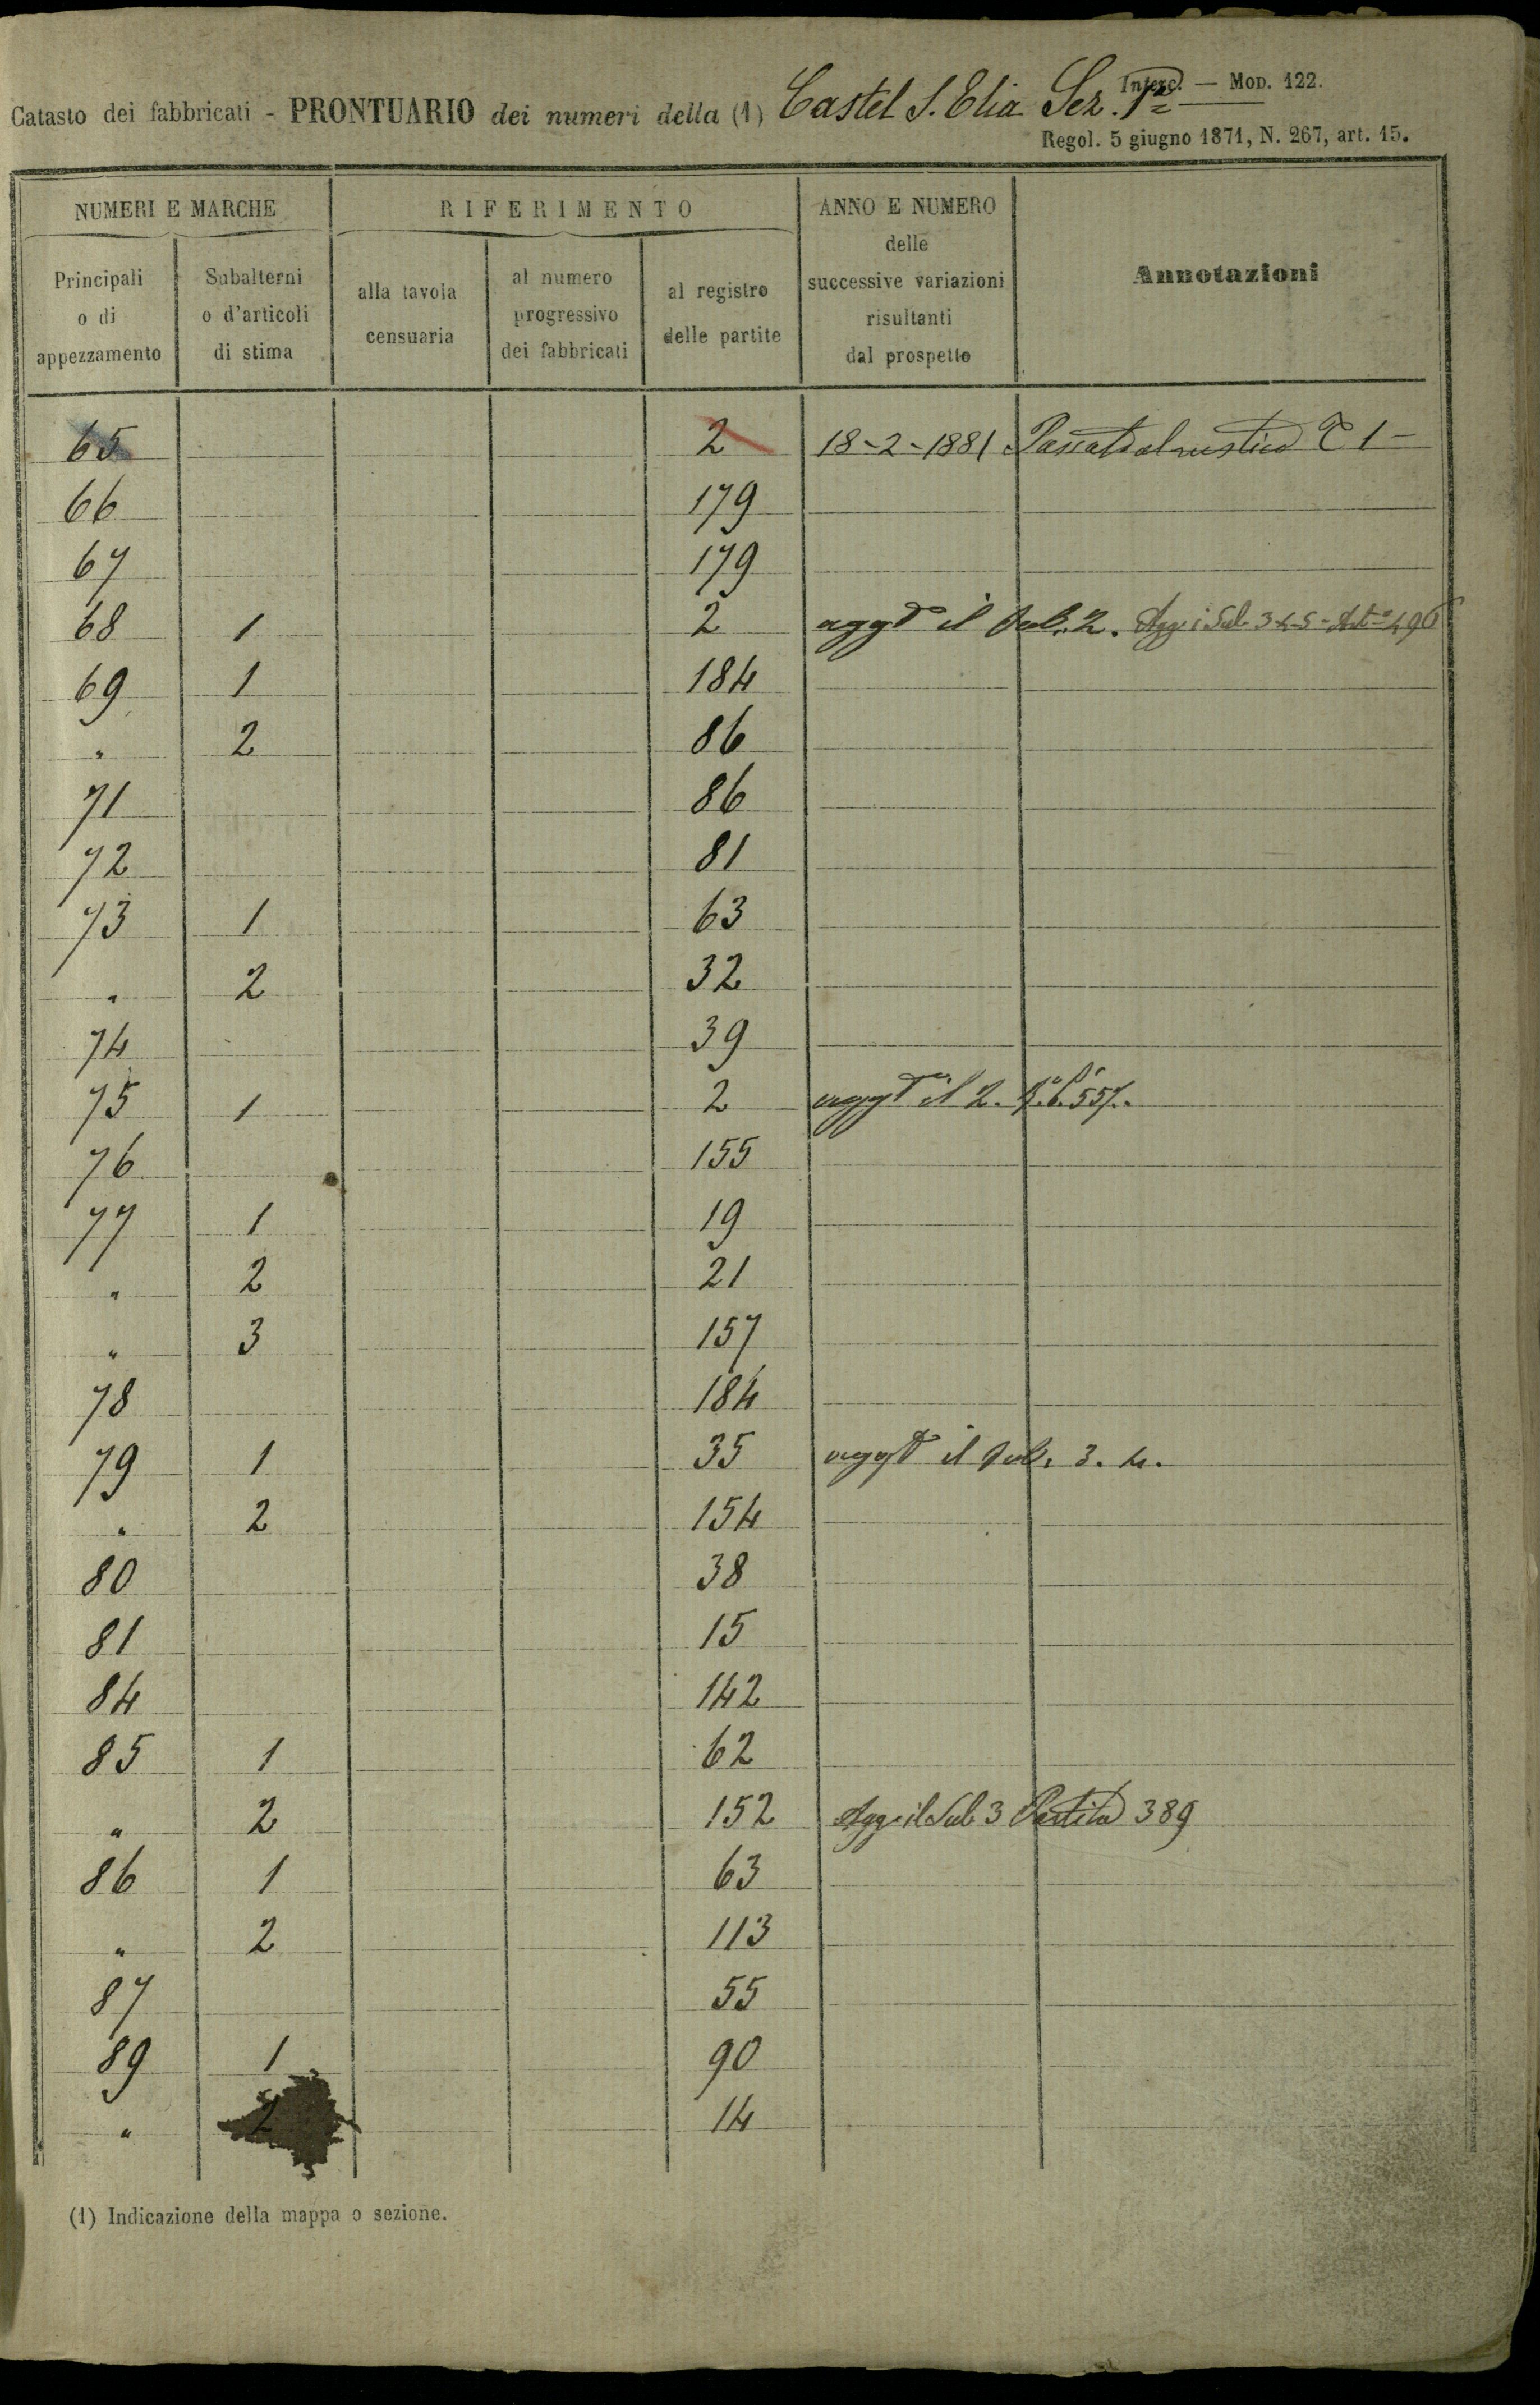 Interc. — Mod. 122.
Catasto dei fabbricati - PRONTUARIO dei numeri della (1) Castel S. Elia Sez. 1ª
Regol. 5 giugno 1871, N. 267, art. 15.
NUMERI E MARCHE RIFERIMENTO ANNO E NUMERO delle successive variazioni risultanti dal prospetto Annotazioni
Principali o di appezzamento Subalterni o d'articoli di stima alla tavola censuaria al numero progressivo dei fabbricati al registro delle partite
65 2 18-2-1881 Passato al rustico 1
66 179
67 179
68 1 2 aggto il sub. 2. Agg. i Sub 3-4-5- 496
69 1 184
" 2 86
71 86
72 81
73 1 63
" 2 32
74 39
75 1 2 aggto il 2. 557.
76 155
77 1 19
" 2 21
" 3 157
78 184
79 1 35 aggto il sub. 3. 4.
" 2 154
80 38
81 15
84 142
85 1 62
" 2 152 Agg. il Sub 3 Partita 389
86 1 63
" 2 113
87 55
89 1 90
" 2 14
(1) Indicazione della mappa o sezione.